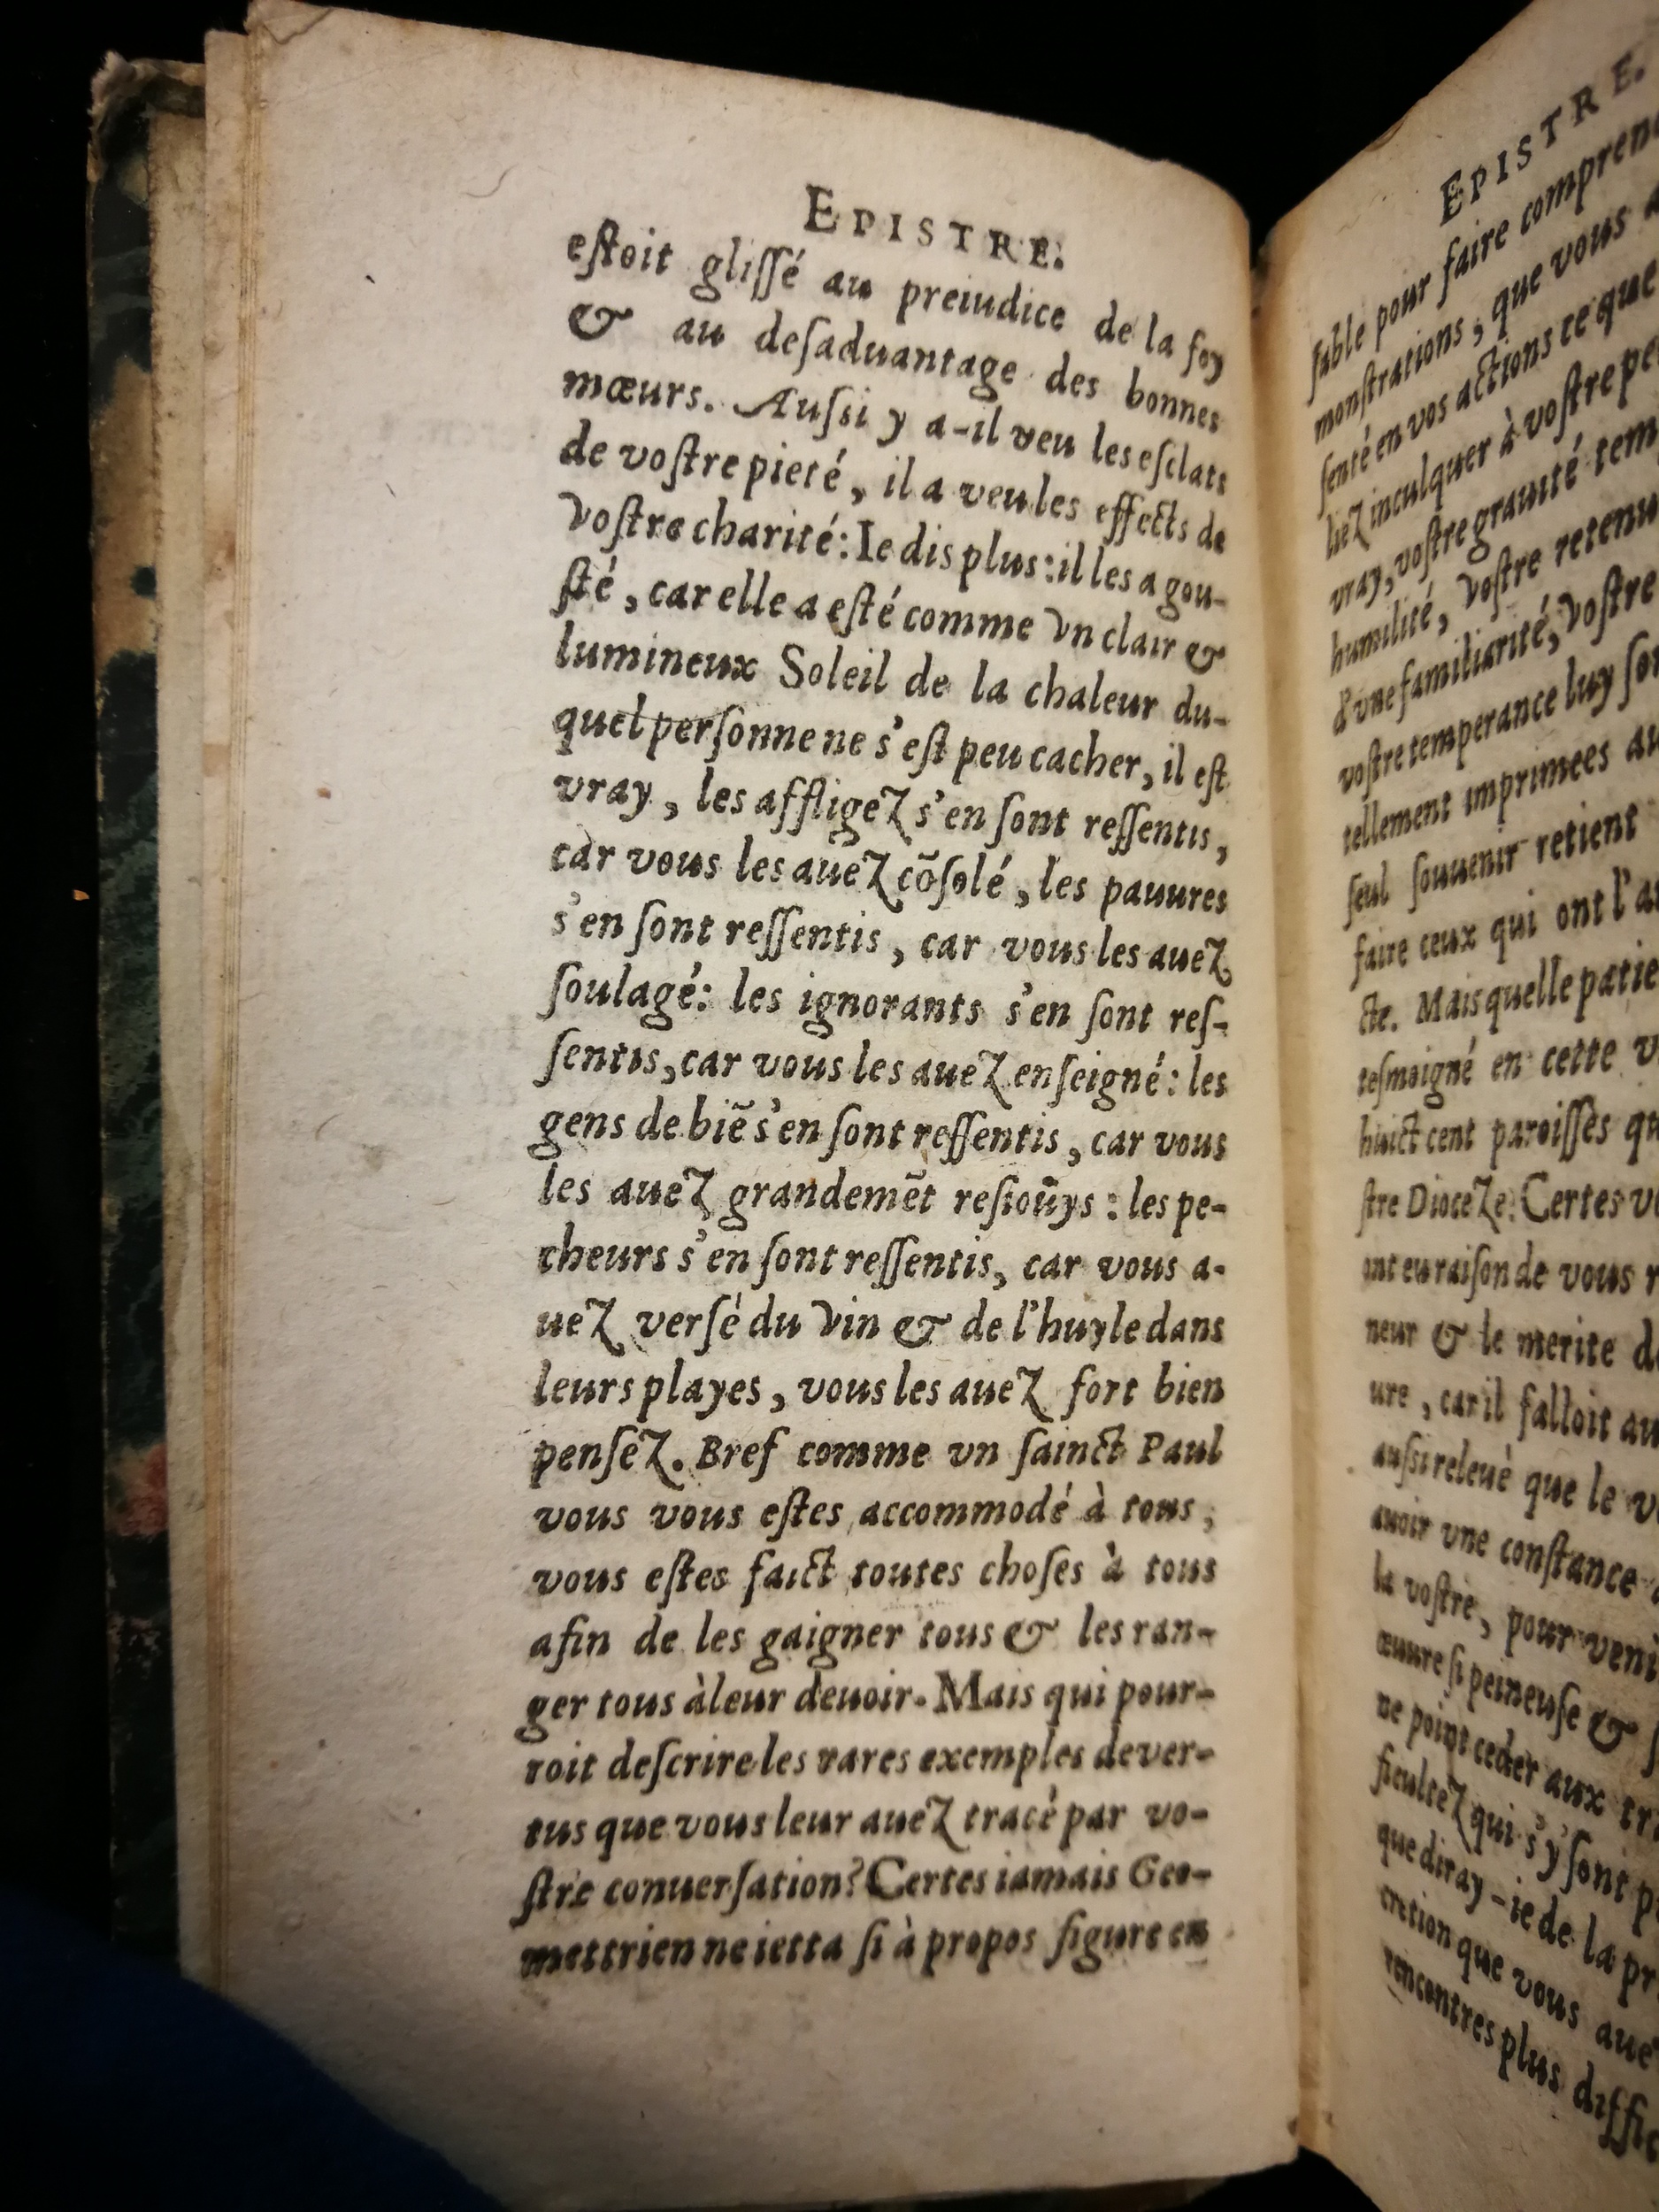 EPISTRE.
eſtoit gliſſé au preiudice de la foy
& au deſaduantage des bonnes
mœurs. Auſsi y a-il veu les eſclats
de voſtre pieté, il a veu les effects de
voſtre charité: Ie dis plus: il les a gou-
ſté, car elle a eſté comme vn clair &
lumineux Soleil de la chaleur du-
quel perſonne ne s'eſt peu cacher, il eſt
vray, les affligez s'en ſont reſſentis,
car vous les auez cõſolé, les pauures
s'en ſont reſſentis, car vous les auez
ſoulagé: les ignorants s'en ſont reſ-
ſentis, car vous les auez enſeigné: les
gens de biẽ s'en ſont reſſentis, car vous
les auez grandemẽt reſioüys: les pe-
cheurs s'en ſont reſſentis, car vous a-
uez verſé du vin & de l'huyle dans
leurs playes, vous les auez fort bien
penſez. Bref comme vn ſainct Paul
vous vous eſtes accommodé à tous,
vous eſtes faict toutes choſes à tous
afin de les gaigner tous & les ran-
ger tous à leur deuoir. Mais qui pour-
roit deſcrire les rares exemples de ver-
tus que vous leur auez tracé par vo-
ſtre conuerſation? Certes iamais Geo-
mettrien ne ietta ſi à propos figure en
EPISTRE.
ſable pour faire compren
monſtrations, que vous
ſenté en vos actions ce que
liez inculquer à voſtre pe
vray, voſtre grauité tem
humilité, voſtre retenu
d'vne familiarité, voſtre
voſtre temperance luy ſon
tellement imprimees au
ſeul ſouuenir retient
faire ceux qui ont l'a
cte. Mais quelle patie
teſmoigné en cette v
huict cent paroiſſes qu
ſtre Dioceze: Certes v
ont eu raiſon de vous r
neur & le merite d
ure, car il falloit au
auſsi releué que le v
auoir vne conſtance
la voſtre, pour veni
œuure ſi peineuſe &
ne point ceder aux tr
ficultez qui s'y ſont p
que diray-ie de la pr
cretion que vous aue
rencontres plus diffic